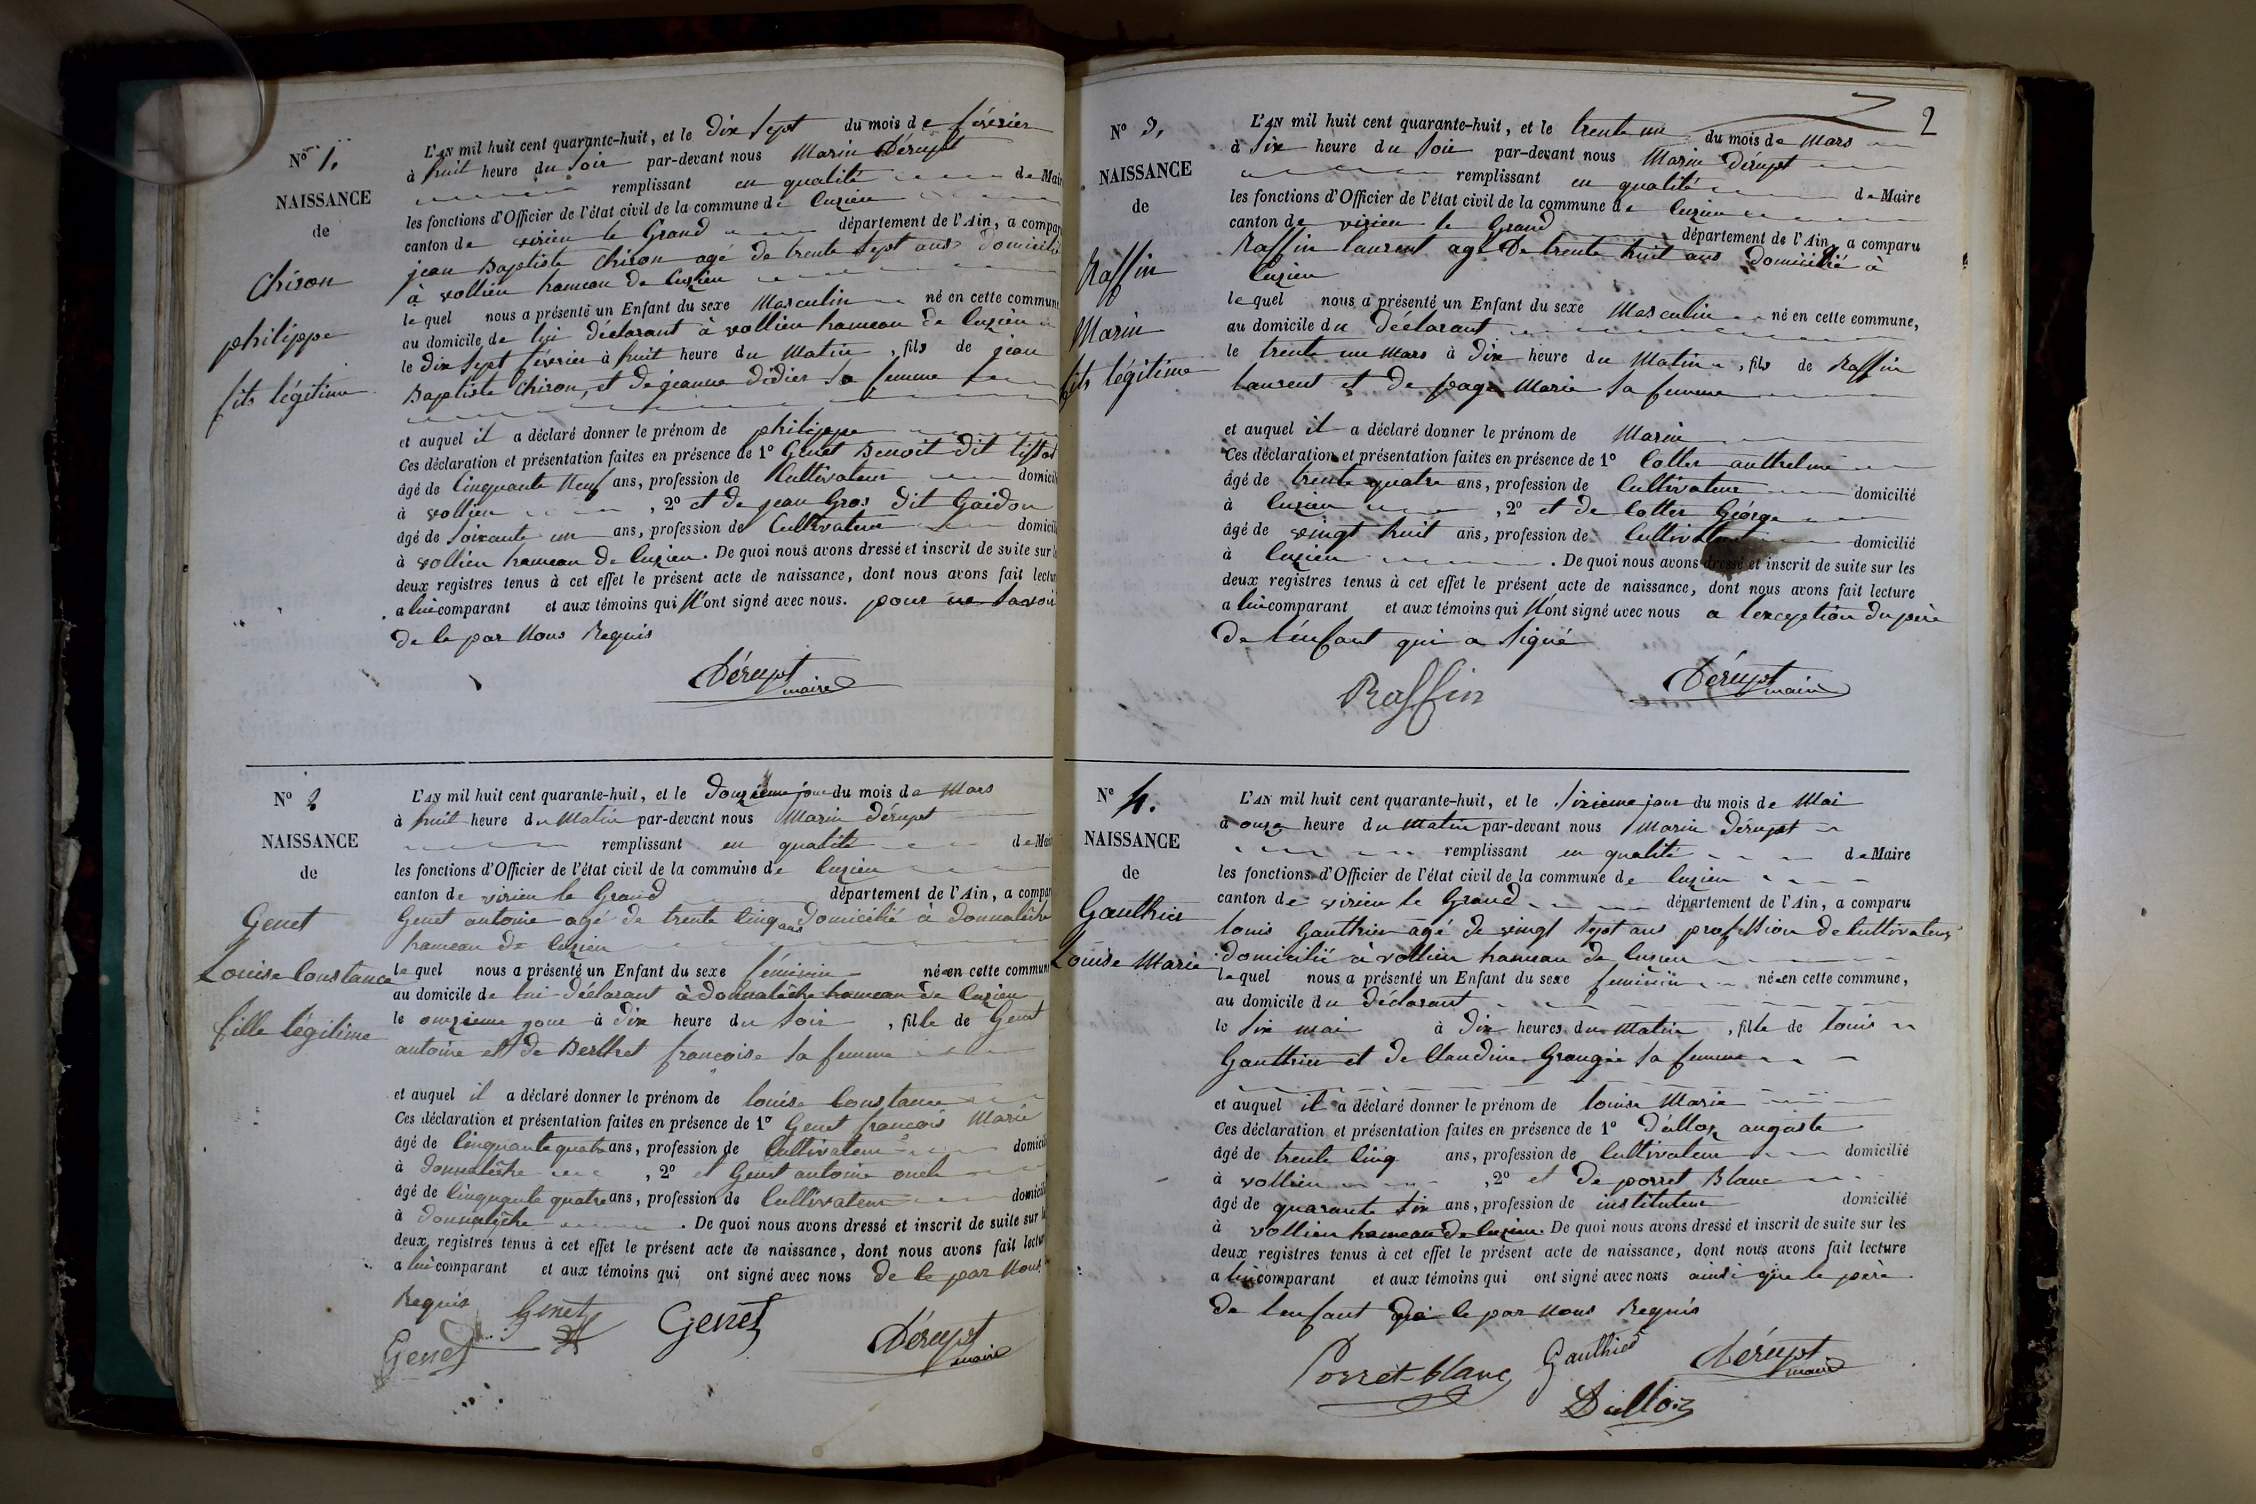 N° 1.
NAISSANCE
de
Chiron
philippe
fils légitime
L'AN mil huit cent quarante-huit, et le dix sept du mois de février
à huit heure du soir par-devant nous Marin Dérupt
remplissant en qualité de Mai
les fonctions d'Officier de l'état civil de la commune de Cuzieu
canton de virieu le Grand département de l'Ain, a compar
jean Baptiste Chiron agé de trente sept ans domicilié
à vollien hameau de Cuzieu
lequel nous a présenté un Enfant du sexe Masculin né en cette commune
au domicile de lui déclarant à vollien hameau de Cuzieu
le dix sept février à huit heure du Matin, fils de jean
Baptiste Chiron, et de jeanne didier sa femme
et auquel il a déclaré donner le prénom de philippe
Ces déclaration et présentation faites en présence de 1° Genet Benoit dit
âgé de Cinquante Neuf ans, profession de Cultivateur domicili
à vollien, 2° et de jean Gros dit Gaidon
âgé de soixante un ans, profession de Cultivateur domicili
à vollien hameau de Cuzieu. De quoi nous avons dressé et inscrit de suite sur
deux registres tenus à cet effet le présent acte de naissance, dont nous avons fait lectur
a lui comparant et aux témoins qui N'ont signé avec nous. pour ne savoir
de le par Nous Requis
Dérupt
maire
N° 2
NAISSANCE
de
Genet
Louise Constance
fille légitime
L'AN mil huit cent quarante-huit, et le douzieme jour du mois de Mars
à huit heure du Matin par-devant nous Marin Dérupt
remplissant en qualité de Mai
les fonctions d'Officier de l'état civil de la commune de Cuzieu
canton de virieu le Grand département de l'Ain, a compar
Genet antoine agé de trente Cinq ans domicilié à donnalèche
hameau de Cuzieu
lequel nous a présenté un Enfant du sexe féminin né en cette commune
au domicile de lui déclarant à donnalèche hameau de Cuzieu
le onzieme jour à dix heure du soir, fille de Genet
antoine et de Berthet françoise sa femme
et auquel il a déclaré donner le prénom de louise Constance
Ces déclaration et présentation faites en présence de 1° Genet françois Marie
âgé de Cinquante quatre ans, profession de Cultivateur domicili
à donnalèche, 2° et Genet antoine oncle
âgé de Cinquante quatre ans, profession de Cultivateur domicili
à donnalèche. De quoi nous avons dressé et inscrit de suite sur
deux registres tenus à cet effet le présent acte de naissance, dont nous avons fait lectur
a lui comparant et aux témoins qui ont signé avec nous de le par Nous
Requis
Genet
Genet
Genet
Dérupt
maire
2
N° 3.
NAISSANCE
de
Raffin
Marin
fils légitime
L'AN mil huit cent quarante-huit, et le trente un du mois de Mars
à six heure du soir par-devant nous Marin Dérupt
remplissant en qualité de Maire
les fonctions d'Officier de l'état civil de la commune de Cuzieu
canton de virieu le Grand département de l'Ain, a comparu
Raffin laurent agé de trente huit ans domicilié à
Cuzieu
lequel nous a présenté un Enfant du sexe Masculin né en cette commune,
au domicile du déclarant
le trente un Mars à dix heure du Matin, fils de Raffin
laurent et de page Marie sa femme
et auquel il a déclaré donner le prénom de Marin
Ces déclaration et présentation faites en présence de 1° Cotter anthelme
âgé de trente quatre ans, profession de Cultivateur domicilié
à Cuzieu, 2° et de Cotter George
âgé de vingt huit ans, profession de Cultivateur domicilié
à Cuzieu. De quoi nous avons dressé et inscrit de suite sur les
deux registres tenus à cet effet le présent acte de naissance, dont nous avons fait lecture
a lui comparant et aux témoins qui N'ont signé avec nous a l'exception du père
de l'enfant qui a signé
Raffin
Dérupt
maire
N° 4.
NAISSANCE
de
Gauthier
Louise Marie
L'AN mil huit cent quarante-huit, et le sixieme jour du mois de Mai
à onze heure du Matin par-devant nous Marin Dérupt
remplissant en qualité de Maire
les fonctions d'Officier de l'état civil de la commune de Cuzieu
canton de virieu le Grand département de l'Ain, a comparu
louis Gauthier agé de vingt sept ans profession de Cultivateur
domicilié à vollien hameau de Cuzieu
lequel nous a présenté un Enfant du sexe feminin née en cette commune,
au domicile du déclarant
le six mai à dix heures du Matin, fille de louis
Gauthier et de Claudine Grangée sa femme
et auquel il a déclaré donner le prénom de louise Marie
Ces déclaration et présentation faites en présence de 1° Dálloz auguste
âgé de trente Cinq ans, profession de Cultivateur domicilié
à vollien, 2° et de porret Blanc
âgé de quarante six ans, profession de instituteur domicilié
à vollien hameau de Cuzieu. De quoi nous avons dressé et inscrit de suite sur les
deux registres tenus à cet effet le présent acte de naissance, dont nous avons fait lecture
a lui comparant et aux témoins qui ont signé avec nous ainsi que le père
de l'enfant de le par Nous Requis
Porret-blanc
Gauthier
Dérupt
maire
Dalloz